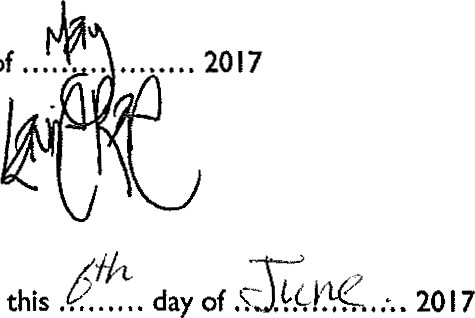 of May 2017
this 6th day of June 2017